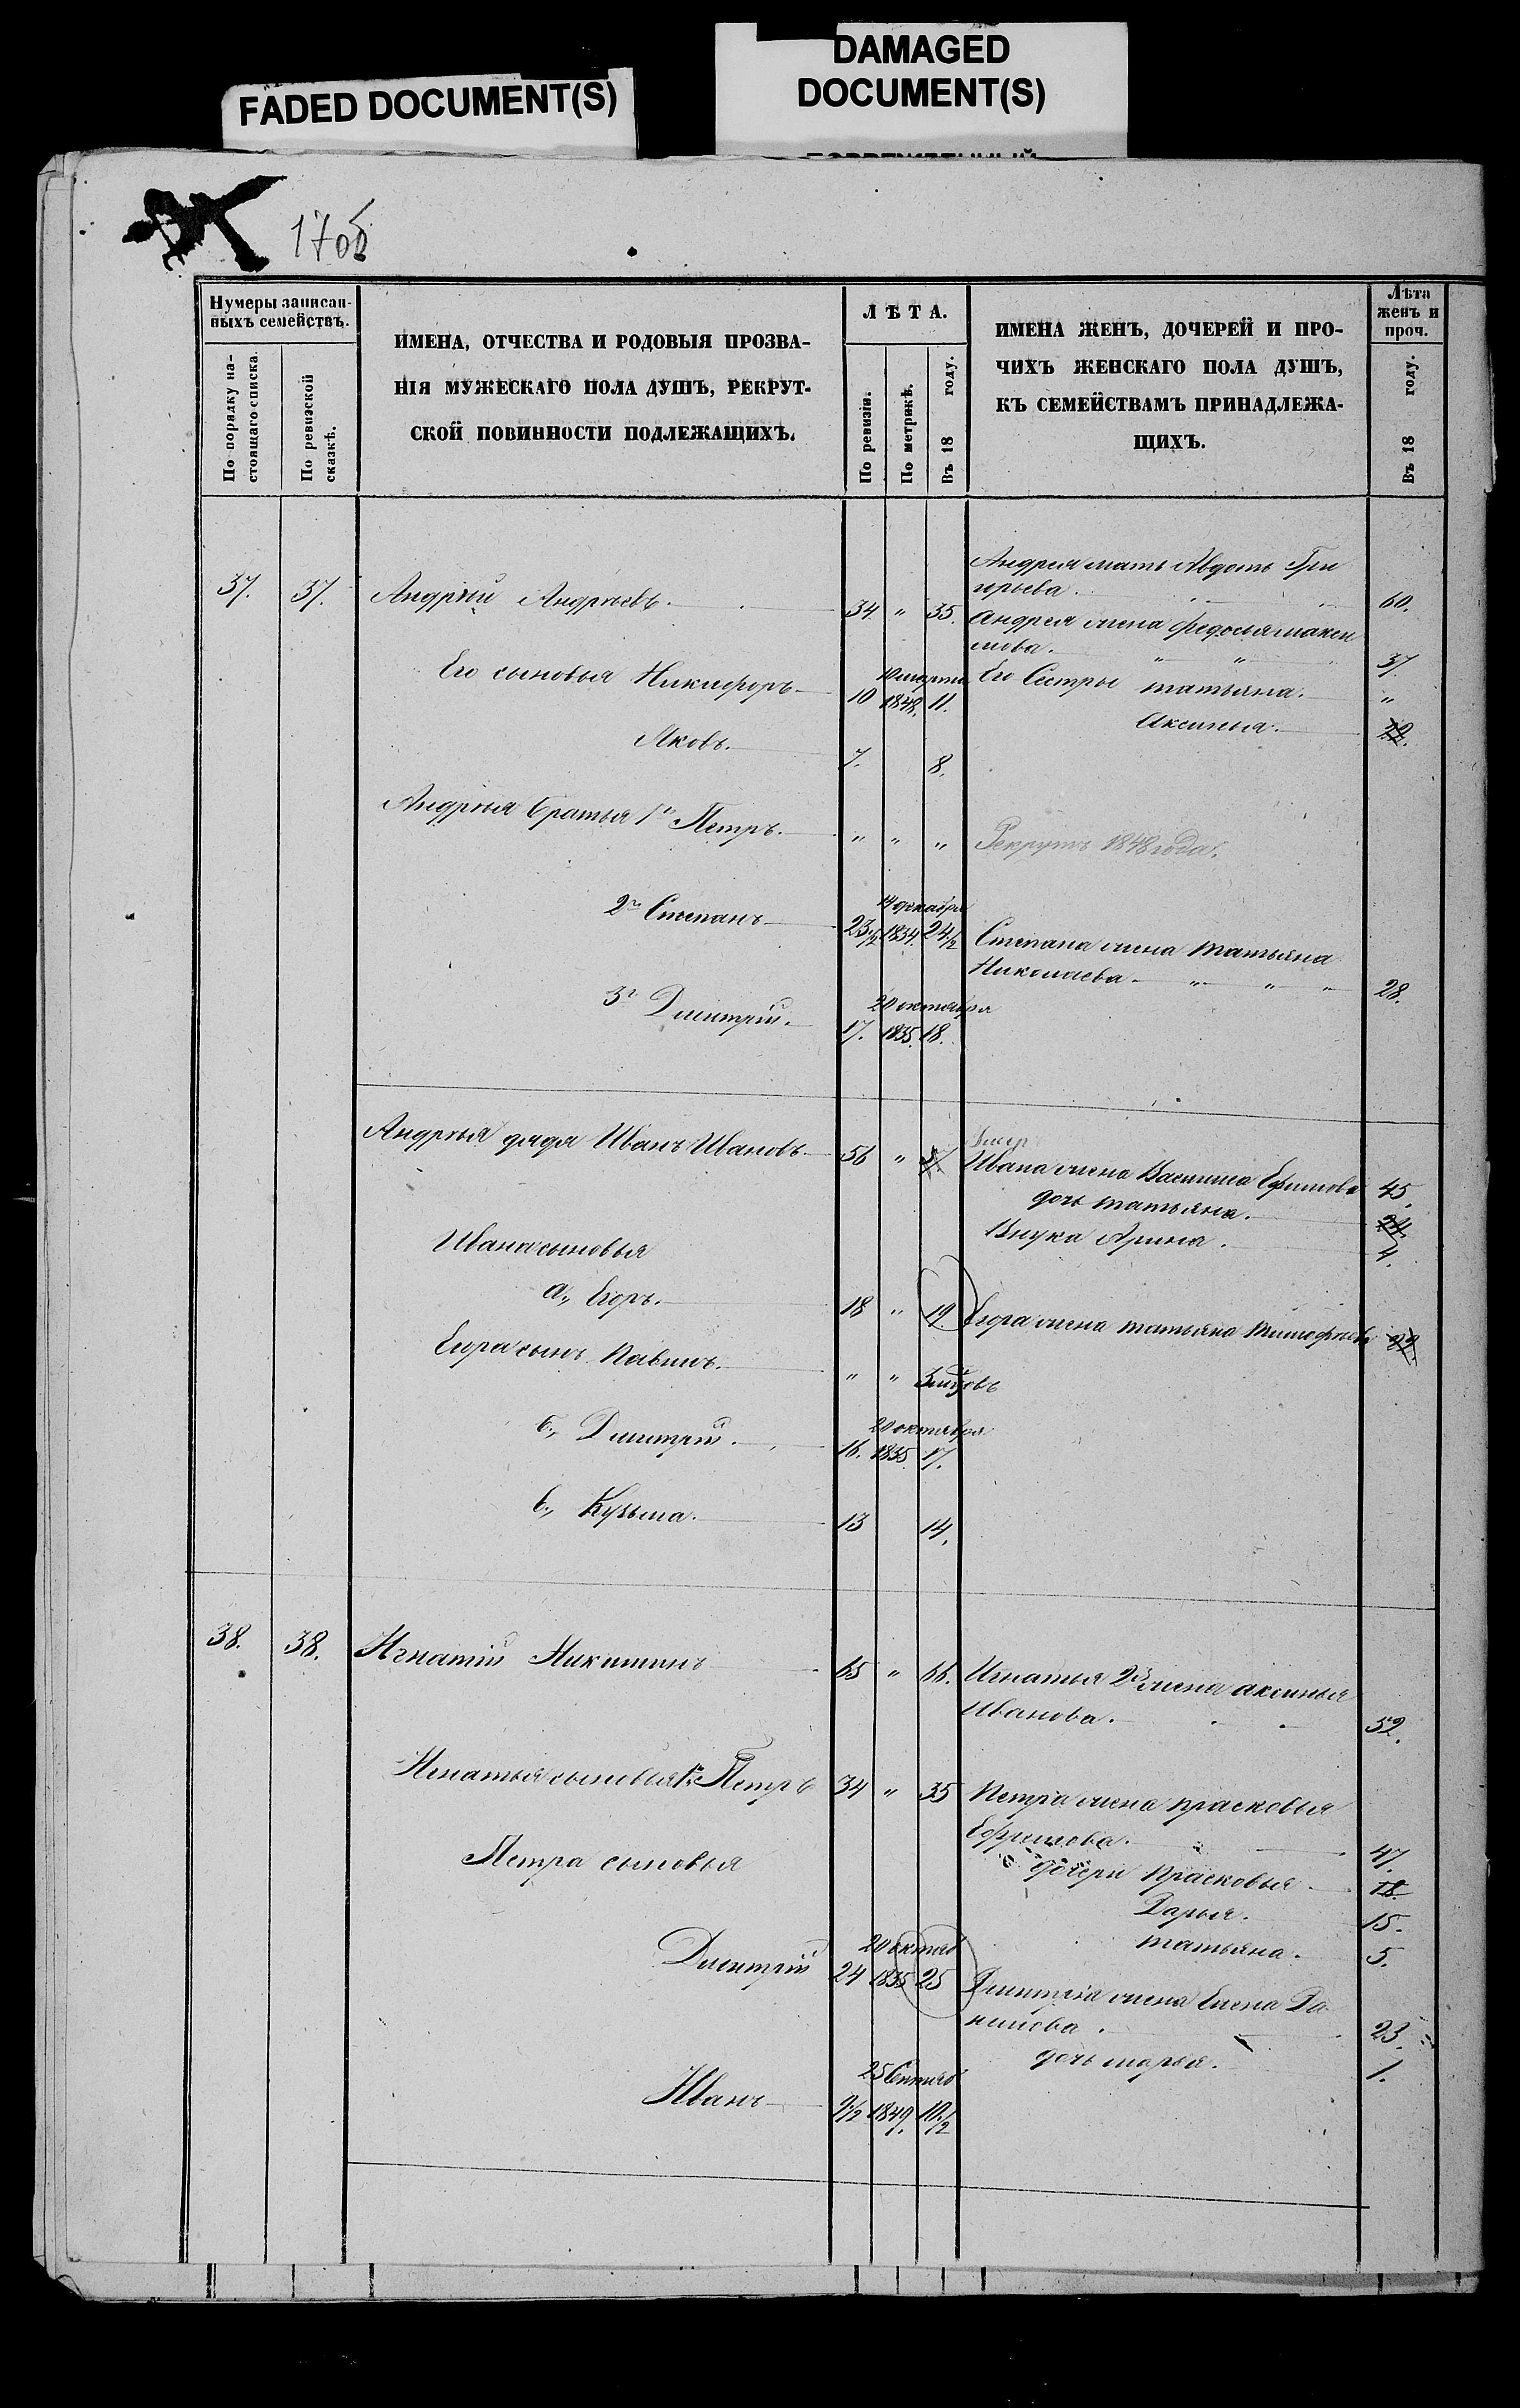 FADED DOCUMENT(S)
DAMAGED
DOCUMENT(S)
17об
Нумеры записан-
ныхъ семействъ.
По порядку на-
стоящаго списка.
По ревизской
сказкѣ.
ИМЕНА, ОТЧЕСТВА И РОДОВЫЯ ПРОЗВА-
НІЯ МУЖЕСКАГО ПОЛА ДУШЪ, РЕКРУТ-
СКОЙ ПОВИННОСТИ ПОДЛЕЖАЩИХЪ.
ЛѢТА.
По ревизіи.
По метрикѣ.
Въ 18 году.
ИМЕНА ЖЕНЪ, ДОЧЕРЕЙ И ПРО-
ЧИХЪ ЖЕНСКАГО ПОЛА ДУШЪ,
КЪ СЕМЕЙСТВАМЪ ПРИНАДЛЕЖА-
ЩИХЪ.
Лѣта
женъ и
проч.
Въ 18 году.
Андрея мать Авдотья Гри
горьева. 60.
37. 37. Андрѣй Андрѣевъ. 34 " 35.
Андрея жена Федосья максимова. 37.
Его сыновья Никифоръ 10 10 марта 1848. 11.
Его Сестры татьяна. "
Аксинья. 22.
Яковъ. 7. 8.
Андрѣя братья 1й Петръ. " " " Рекрутъ 1848 года.
2й Степанъ 23 1/2 14 декабря 1834. 24 1/2
Степана жена татьяна
Николаева. " " " 28.
3й Дмитрій. 17. 20 октября 1835. 18.
Андрѣя дядя Иванъ Ивановъ 56 " 57
Умер
Ивана жена Василиса Ефимова 45.
дочь татьяна. 24
Внука Арина. 4.
Ивана сыновья
а., Егоръ. 18 " 19. Егора жена татьяна Тимофеева 22.
Егора сынъ Павелъ. " " 3 мѣсяцовъ
б., Дмитрій. 16. 20 октября 1835 17.
в., Кузьма. 13 14.
38. 38. Игнатій Никитинъ 65 " 66. Игнатья 2я жена аксинья
Иванова. 52.
Игнатья сыновья 1й Петръ 34 " 35 Петра жена прасковья
Ефимова. 47.
Петра сыновья
дочери Прасковья 18.
Дарья. 15.
татьяна. 5.
Дмитрій 24 20 октяб 1835 25 Дмитрія жена Елена Да
нилова. 23.
дочь марья. 1.
Иванъ 9 1/2 25 Сентяб 1849. 10 1/2